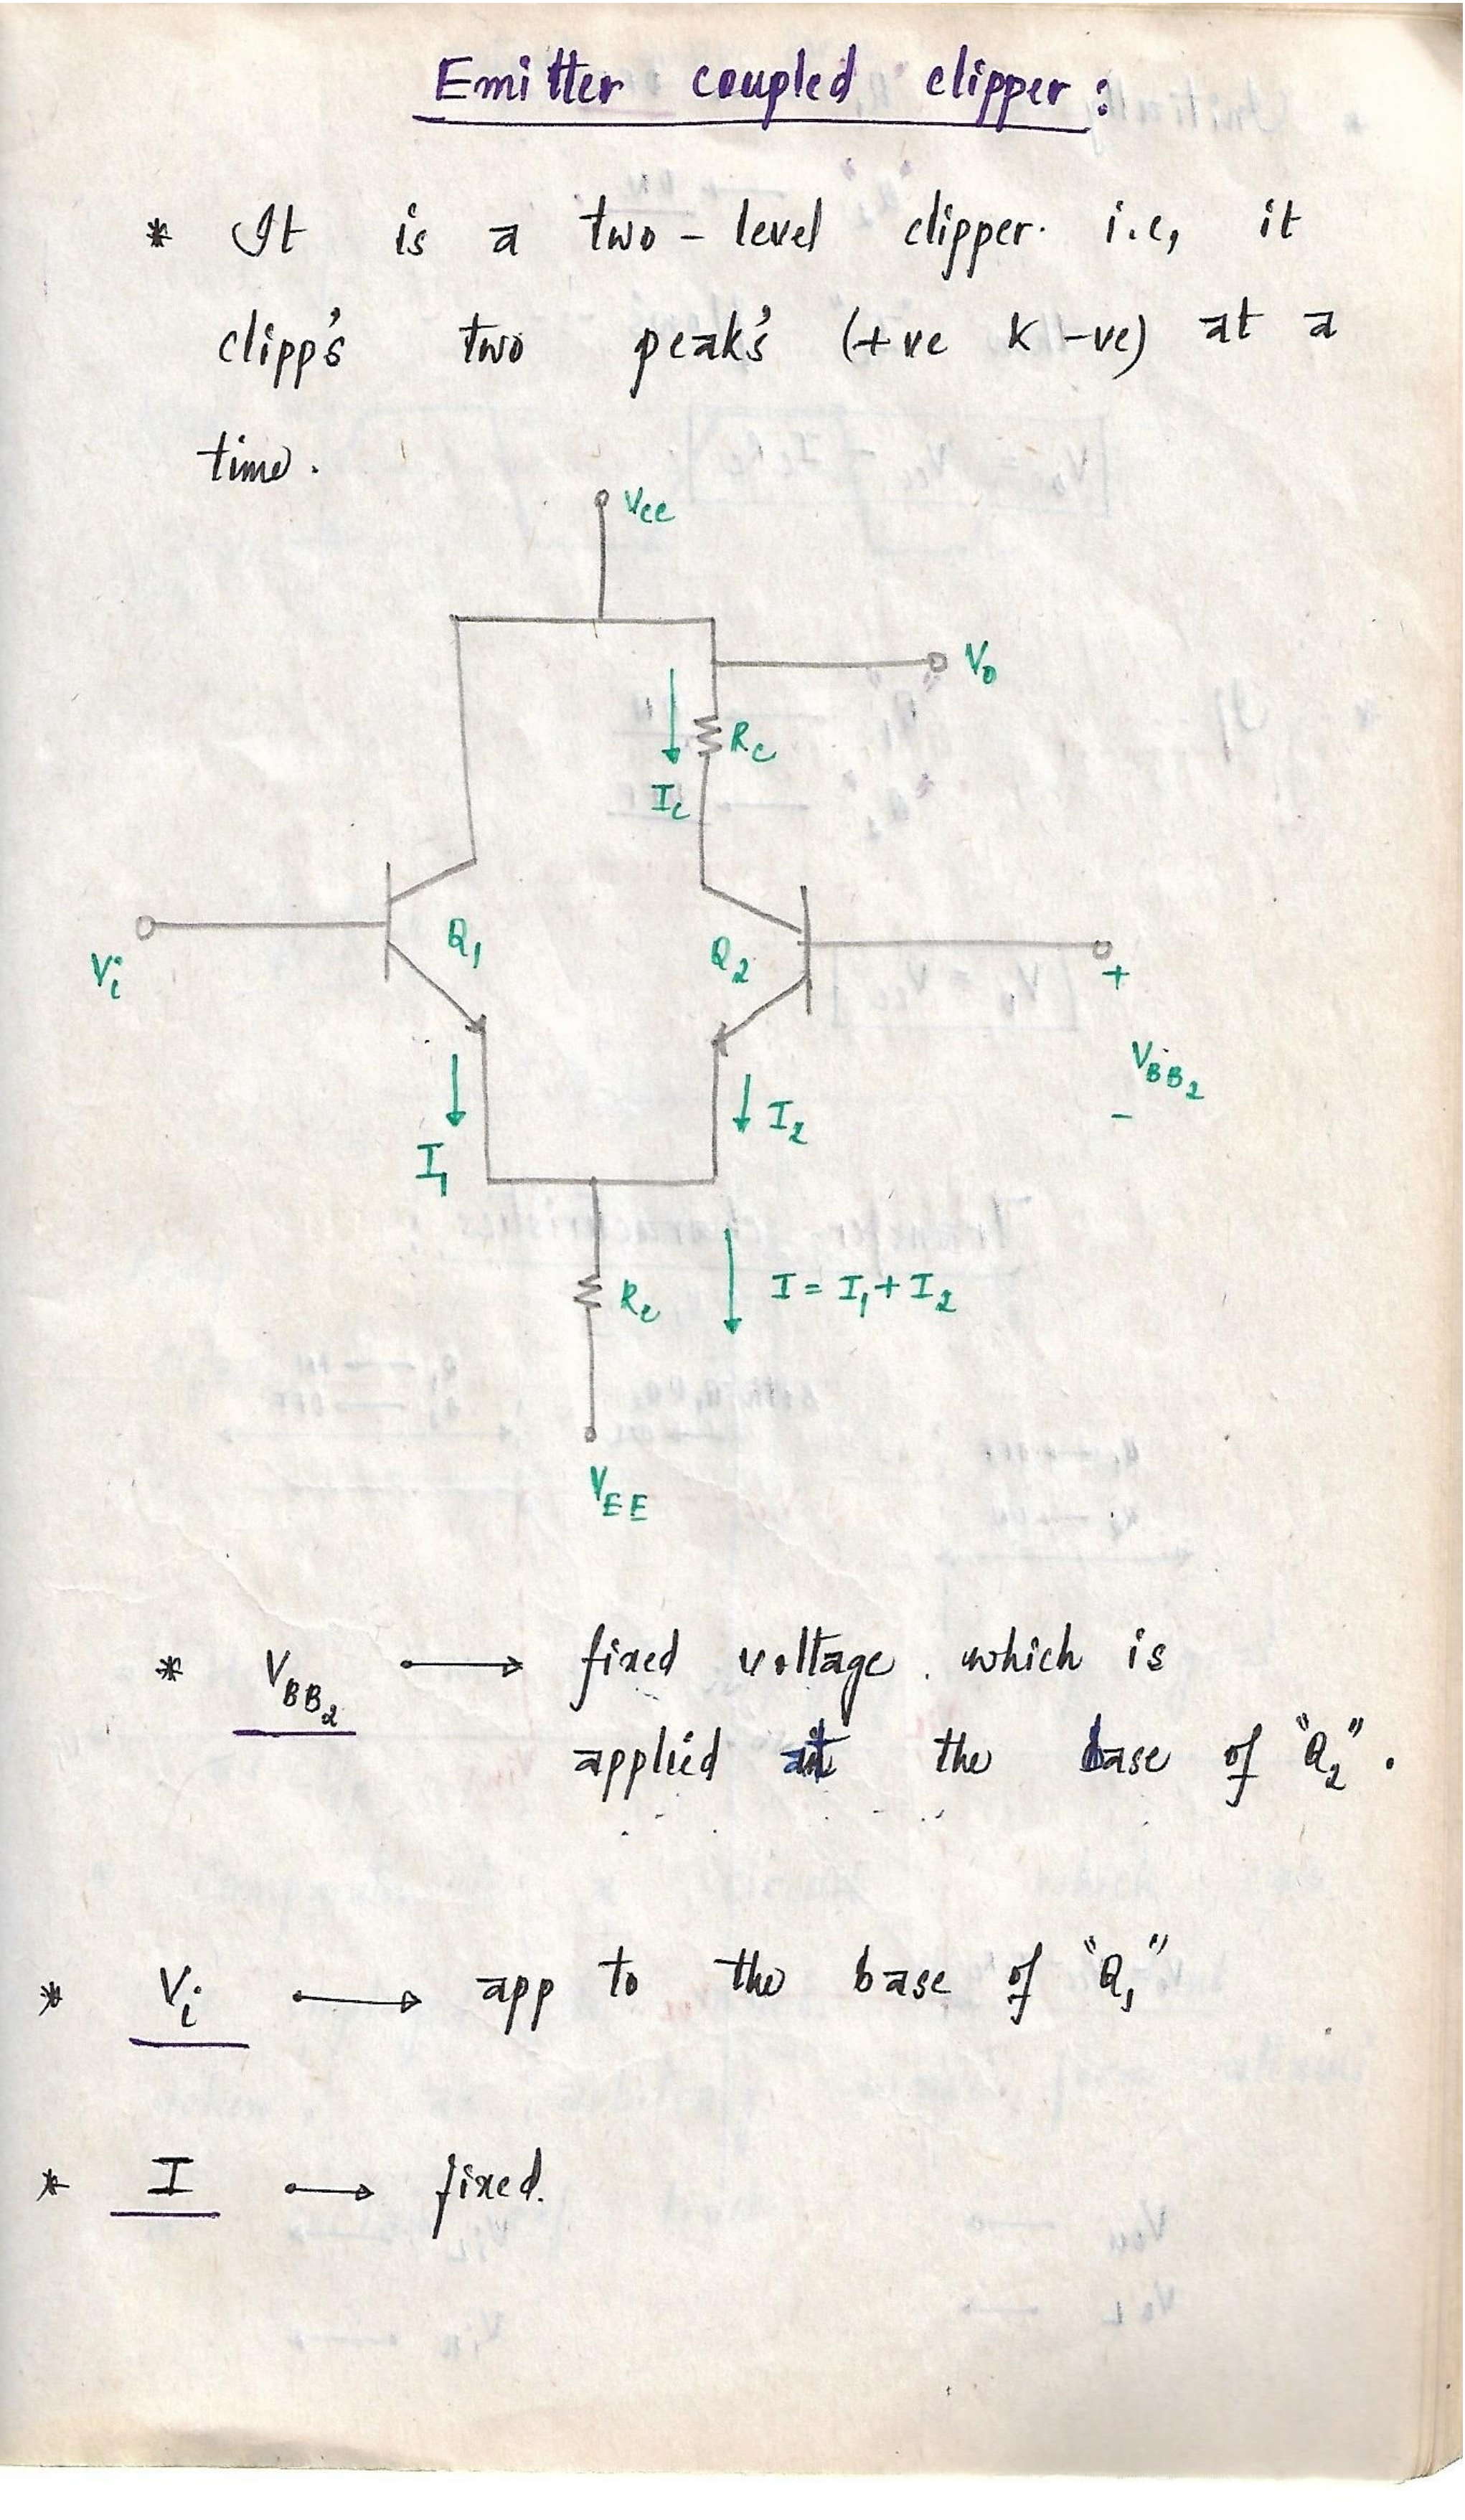 Emitter coupled clipper:
* It is a two-level clipper. i.e, it
clipp's two peak's (+ve & -ve) at a
time.
Vcc
Vo
Rc
Ic
Q1
Q2
Vi
+
VBB2
-
I1
I2
Re
I = I1 + I2
VEE
* VBB2 → fixed voltage which is
applied at the base of "Q2".
* Vi → app to the base of "Q1"
* I → fixed.